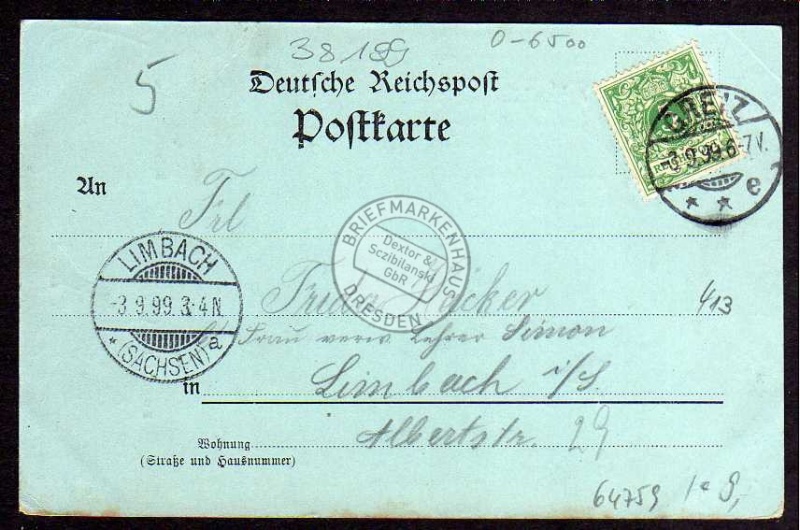 38189
0-6500
5
Deutsche Reichspost
Postkarte
GREIZ
-3.9.99.6-7V.
e
An
Frl
LIMBACH
-3.9.99.3-4N.
* (SACHSEN) a
BRIEFMARKENHAUS
Dextor &
Sczibilanski
GbR
DRESDEN
Frieda
413
Frau verw. Lehrer Simon
in Limbach i/S
Albertstr. 29
Wohnung
(Straße und Hausnummer)
64759